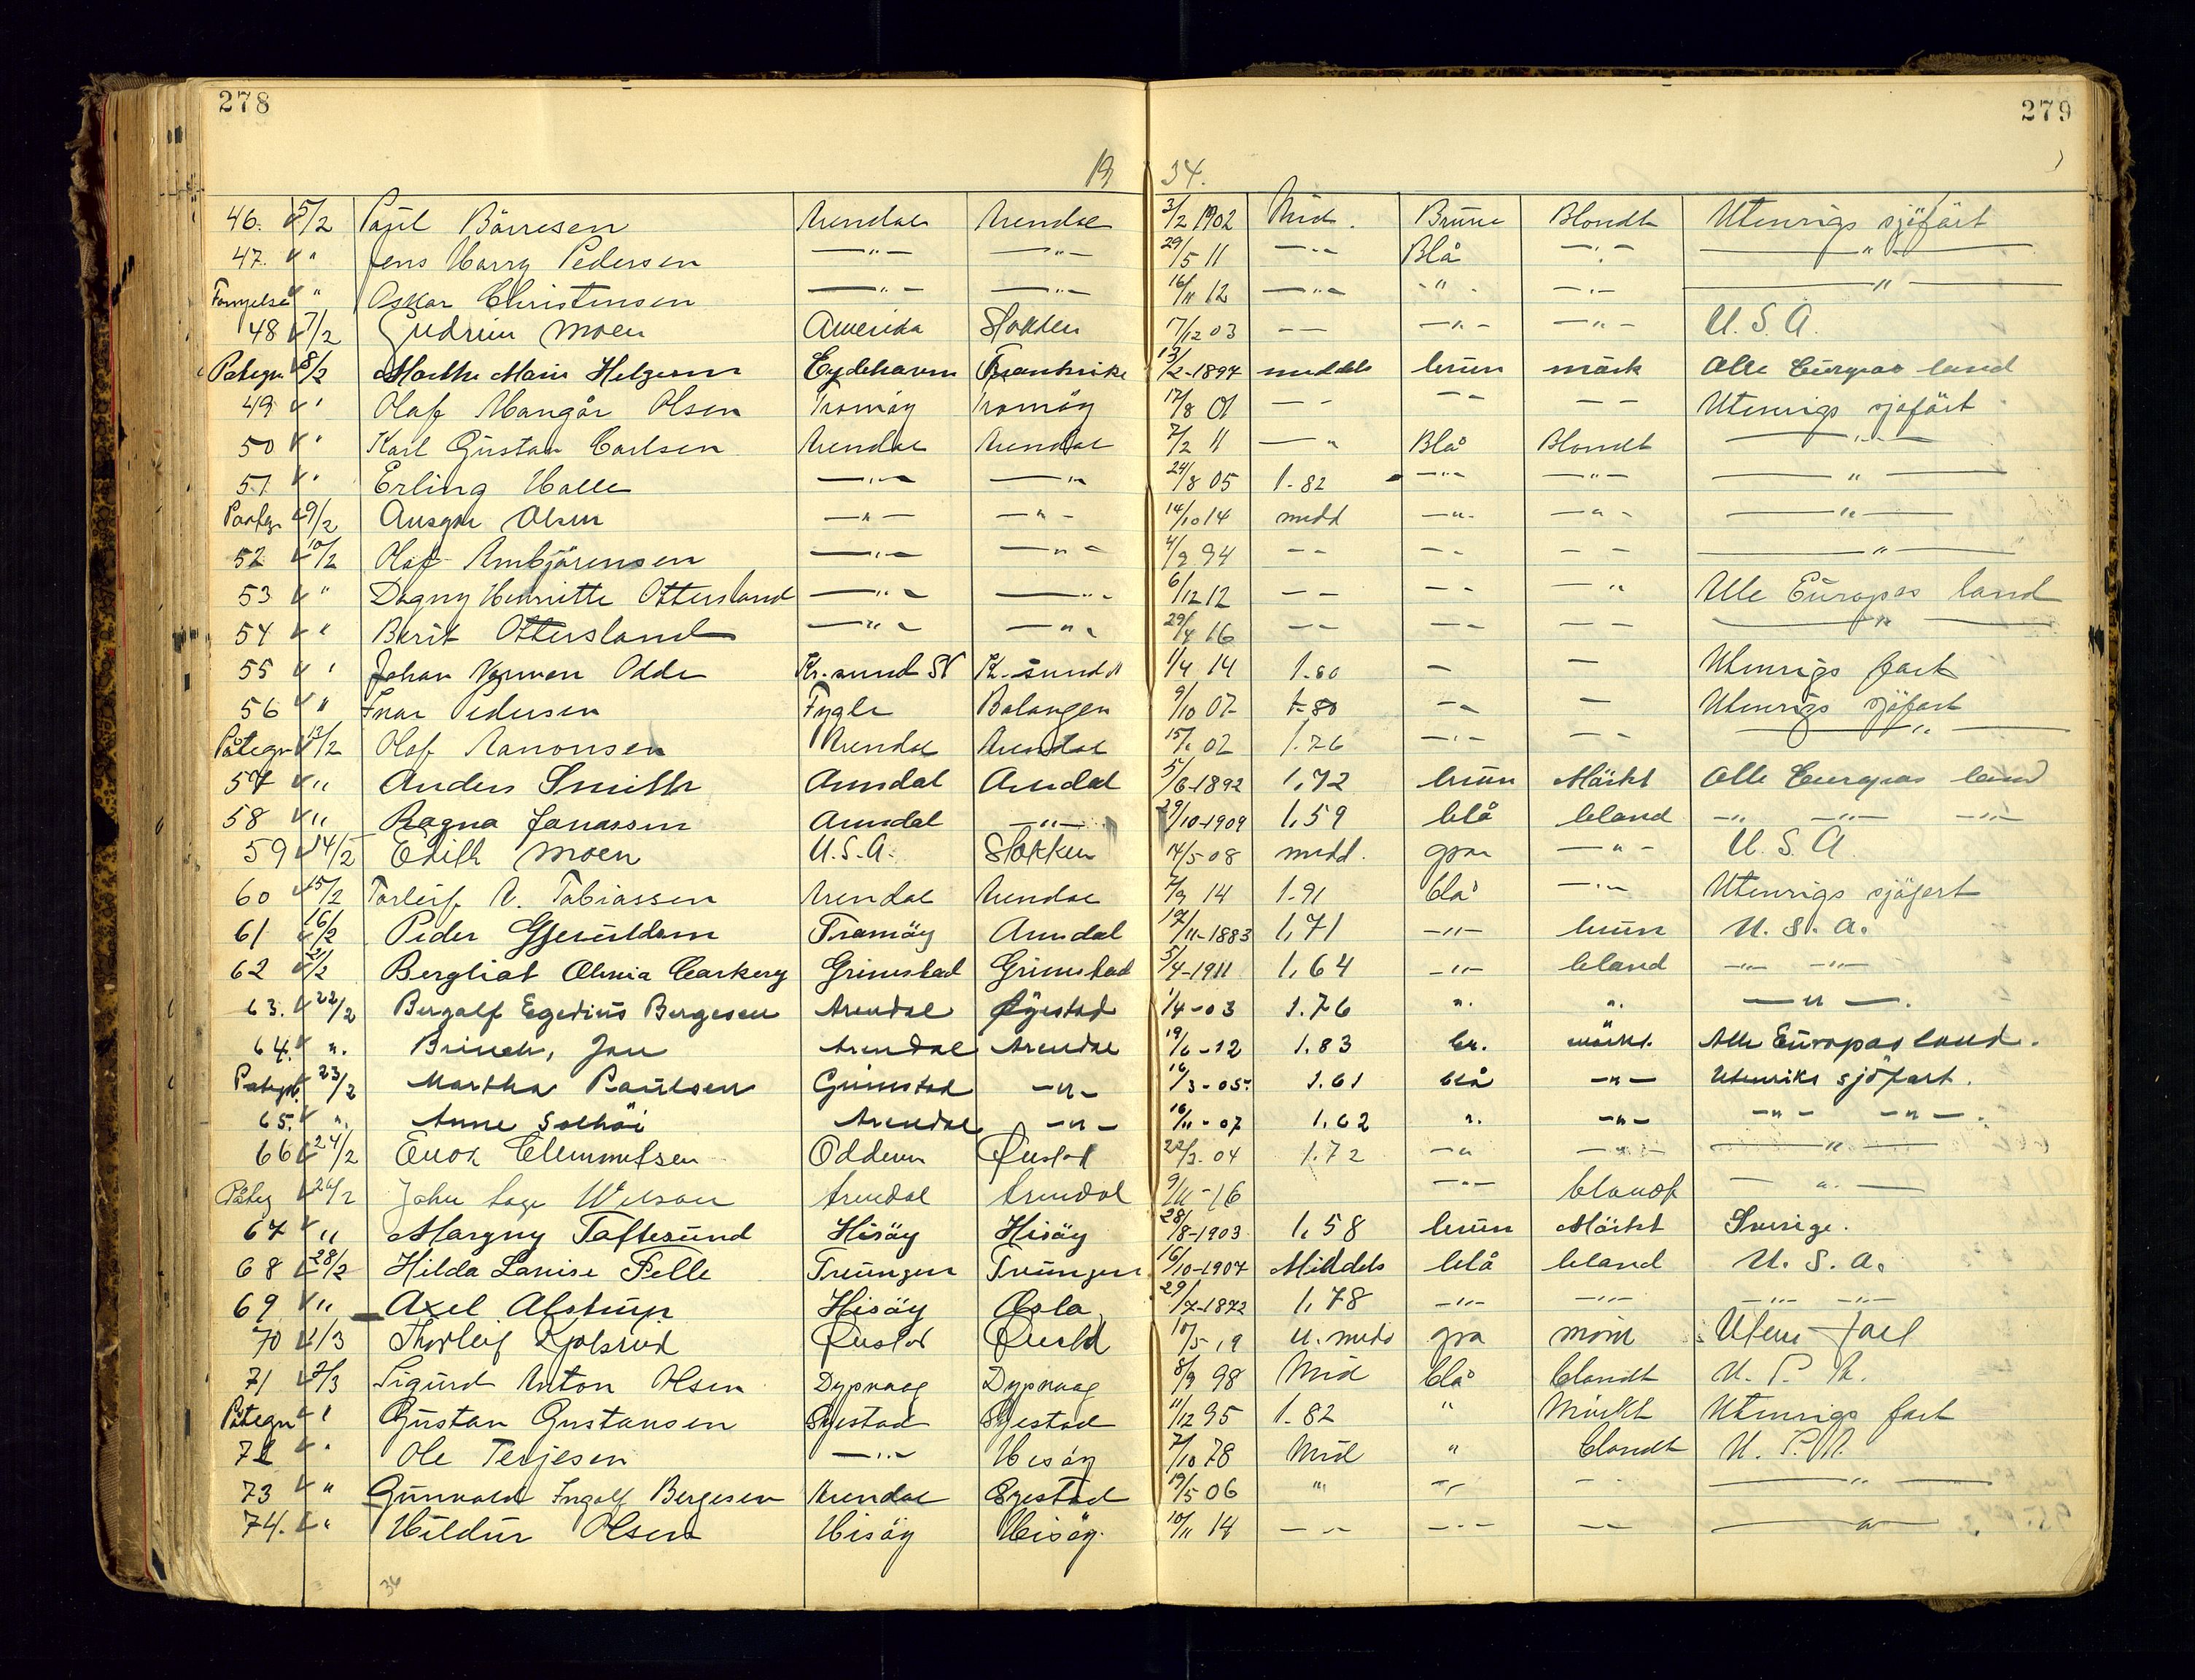 278 279
19 34.
46. 5/2 Paul Börresen Arendal Arendal 3/2 1902 Mid. Brune Blondt Utenrigs sjöfart
47. " Jens Harry Pedersen —"— —"— 29/5 11 —"— Blå —"— —"—
Fornyelse " Oskar Christensen —"— —"— 16/11 12 —"— " —"— —"—
48 7/2 Gudrun Moen Amerika Stokken 17/12 03 — — —"— —"— U.S.A.
Påtegn 8/2 Marthe Marie Helgesen Eydehavn Frankrike 13/2-1897 middels brun mörk Alle Europas land
49 " Olaf Mangår Olsen Tromöy Tromöy 17/8 01 — — — — — — Utenrigs sjøfart
50 " Karl Gustav Carlsen Arendal Arendal 7/2 11 —" Blå Blondt —"—
51 " Erling Halle —"— —"— 24/8 05 1.82 —"— —"— —"—
Paateg 9/2 Ansgar Olsen —"— —"— 14/10 14 midd —"— —"— —"—
52 10/2 Olaf Ambjörensen —"— —"— 4/9 94 — — — — — — —"—
53 " Dagny Henritte Ottersland —"— —"— 6/12 12 — — — — —" Alle Europas land
54 " Berit Ottersland —"— —"— 29/4 16 — — — — — — —"—
55 " Johan Norman Odde Kr.sund N Kr.sund N 1/4 14 1.80 — — Utenrigs fart
56 " Inar Pedersen Fygle Balangen 9/10 07 1-80 — — — Utenrigs sjöfart
Påtegn 13/2 Olaf Aanonsen Arendal Arendal 15/1 02 1.76 —"— — — —"—
57 " Anders Smith Arendal Arendal 5/6-1892 1,72 brun Mörkt Alle Europas land
58 " Ragna Jonassen Arendal —"— 29/10-1909 1,59 blå blond —"— —"— —"—
59 14/2 Edith Moen U.S.A. Stokken 14/5-08 midd. graa —"— U.S.A.
60 15/2 Torleif A. Tobiassen Arendal Arendal 7/9 14 1-91 blå —"— Utenrigs sjöfart
61 16/2 Peder Gjeruldsen Tromöy Arendal 17/11-1883 1,71 —"— brun U.S.A.
62 21/2 Bergliot Olivia Carkery Grimstad Grimstad 5/4-1911 1,64 —"— blond —"— —"—
63. 22/2 Bergolf Egedius Bergesen Arendal Öyestad 1/4-03 1.76 ". ". —"—.
64. ". Brinch, Jan Arendal Arendal 19/6-12 1.83 br. mörkt. Alle Europas land.
Påtegn. 23/2 Martha Paulsen Grimstad —"— 16/3-05. 1.61 blå —"— Utenriks sjöfart.
65. ". Anne Solhöi Arendal —"— 16/11-07 1.62 ". —"— —"— —"—.
66 24/2 Enok Clemmetsen 22/3.04 1.72 —" —"— —"—
Påteg 26/2 John Wilson Arendal Arendal 9/11-16 —"— blondt —"—
67 " Margny Toftesund Hisöy Hisöy 28/8-1903 1,58 brun Mörkt Sverige.
68 28/2 Hilda Lovise Felle Treungen Treungen 16/10-1907 Middels blå blond U.S.A.
69 " Axel Alstrup Hisöy Oslo 29/7-1872 1,78 —"— —"— —"— —"—
70 1/3 Thorleif 10/5-19 u. midd graa
71 2/3 Sigurd Anton Olsen Dypvaag Dypvaag 8/9 98 Mid blå blondt
Påtegn " Gustav Gustavsen Öyestad Öyestad 11/12 95 1-82 " Mörkt Utenrigs fart
72 " Ole Terjesen —"— Hisöy 7/10 78 Mid " blondt
73 " Gunvald Ingolf Bergesen Arendal Öyestad 19/5 06 " —"— — —"—
74. " Hildur Olsen Hisöy Hisöy 10/11 14 — — —"— — — —"—
36